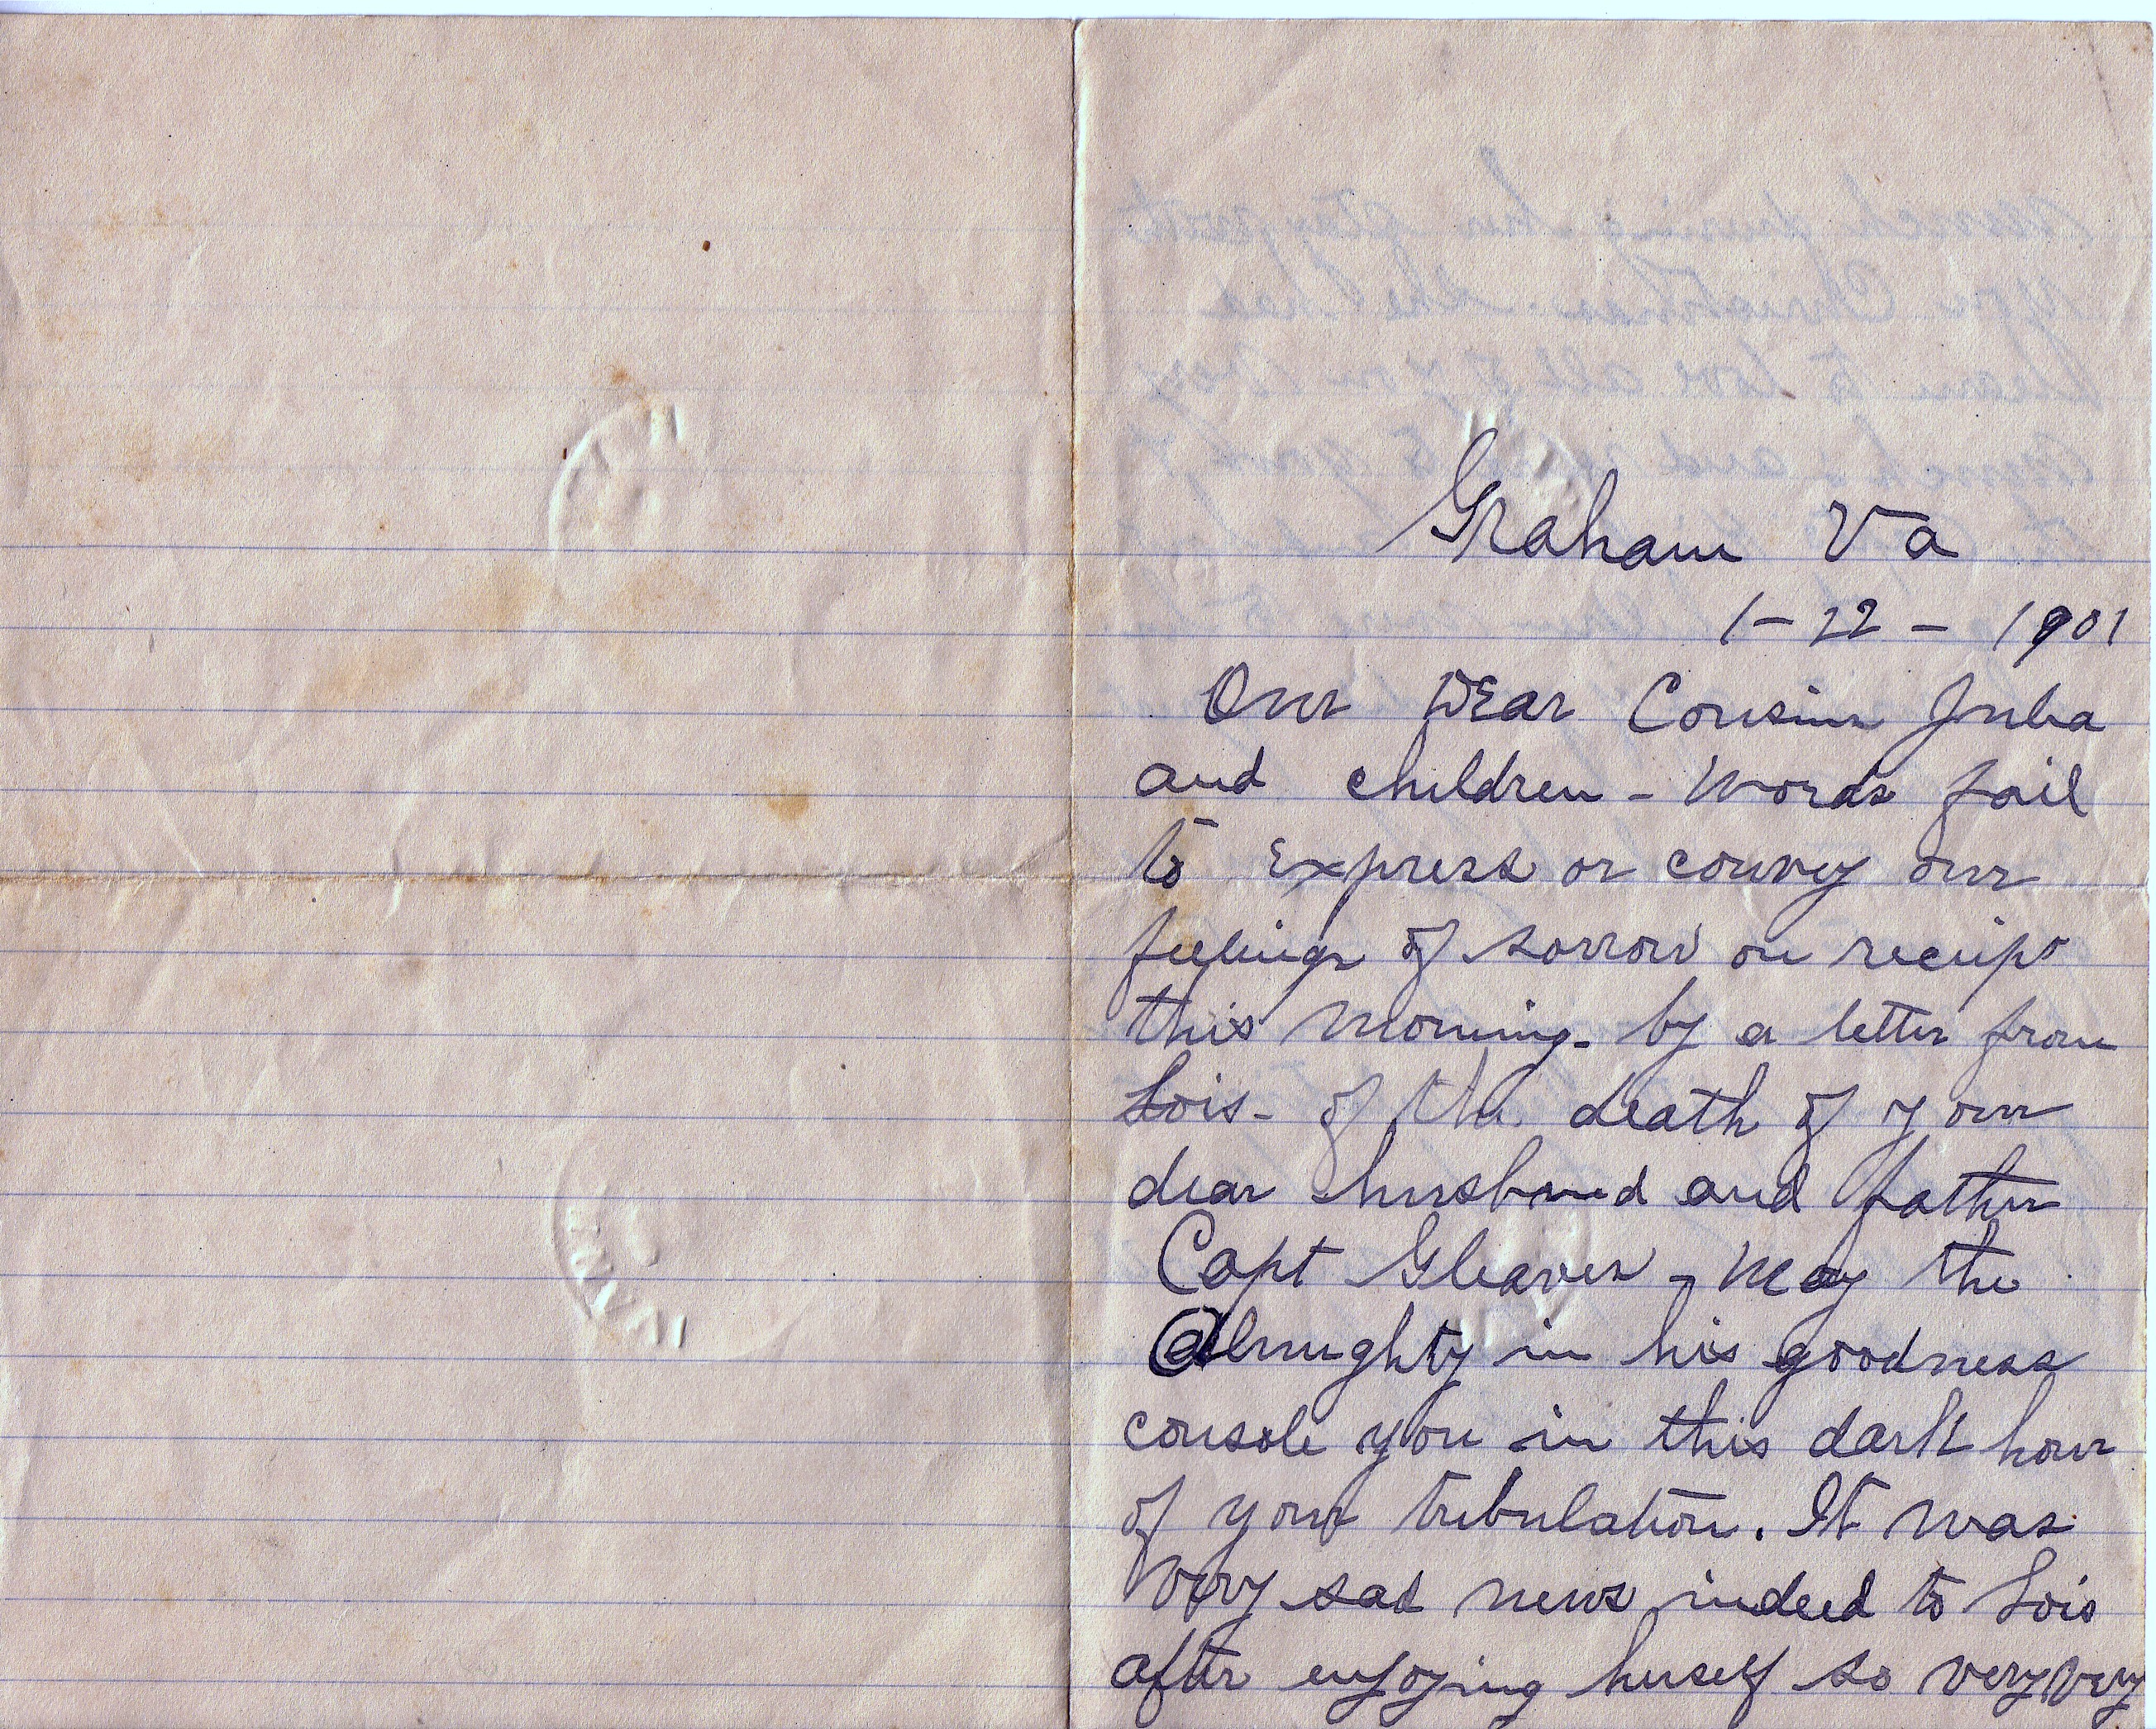 Graham Va
1-22-1901
Our Dear Cousin Julia
and children - Words fail
to Express or convey our
feelings of sorrow on receipt
this morning - by a letter from
Lois - of the death of your
dear husband and father
Capt Gleaves - May the
Almughty in his goodness
console you in this dark hour
of your tribulation. It was
very sad news indeed to Lois
after enjoying herself so very very